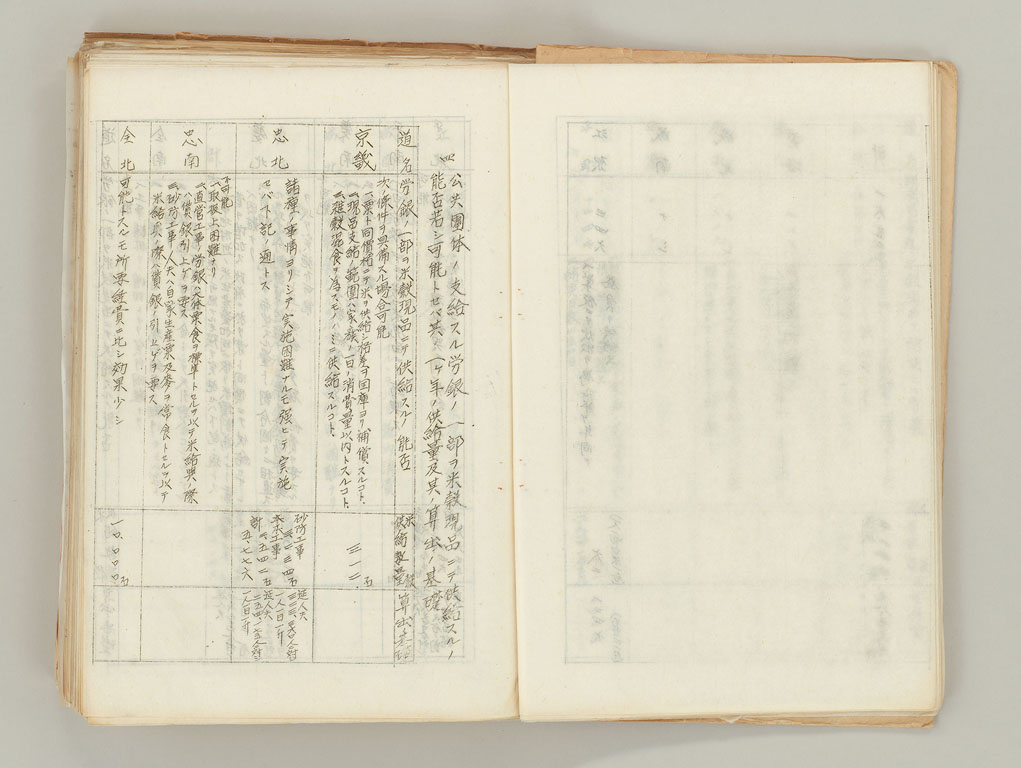 四 公共團体ノ支給スル労銀ノ一部ヲ米穀現品ニテ供給スルノ
能否若シ可能トセバ其ノ一ケ年ノ供給量及其ノ算出ノ基礎
道名
労銀ノ一部ヲ米穀現品ニテ供給スルノ能否
米穀
算出基礎
京畿
次ノ條件ヲ具備スル場合可能
一、粟ト同價格ニテ米ヲ供給シ差ヲ国庫ヨリ補償スルコト、
二、現品支給ノ範囲ハ家族ノ一日ノ消費量以内トスルコト、
三、雑穀混食ヲ為スモノノミニ供給スルコト、
三一二、石
忠北
諸種ノ事情ヨリシテ実施困難ナルモ强ヒテ実施
セバ下記ノ通トス
砂防工事
三、二三四石
土木工事
二、五四二石
計
五、七七六
延人夫
一人一日一升
延人夫
一人一日一升
忠南
不可能
一、取扱上困難ナリ
二、直営工事ノ労銀ハ大体粟食ヲ標準トセルヲ以テ米給與ノ際
ハ賃銀引上ゲヲ要ス
三、砂防工事ノ人夫ハ自家生産粟及麥ヲ常食トセルヲ以テ
米給與ノ際ハ賃銀ノ引上ゲヲ要ス
全北
可能トスルモ所要経費ニ比シ効果少シ
一〇、〇〇〇石